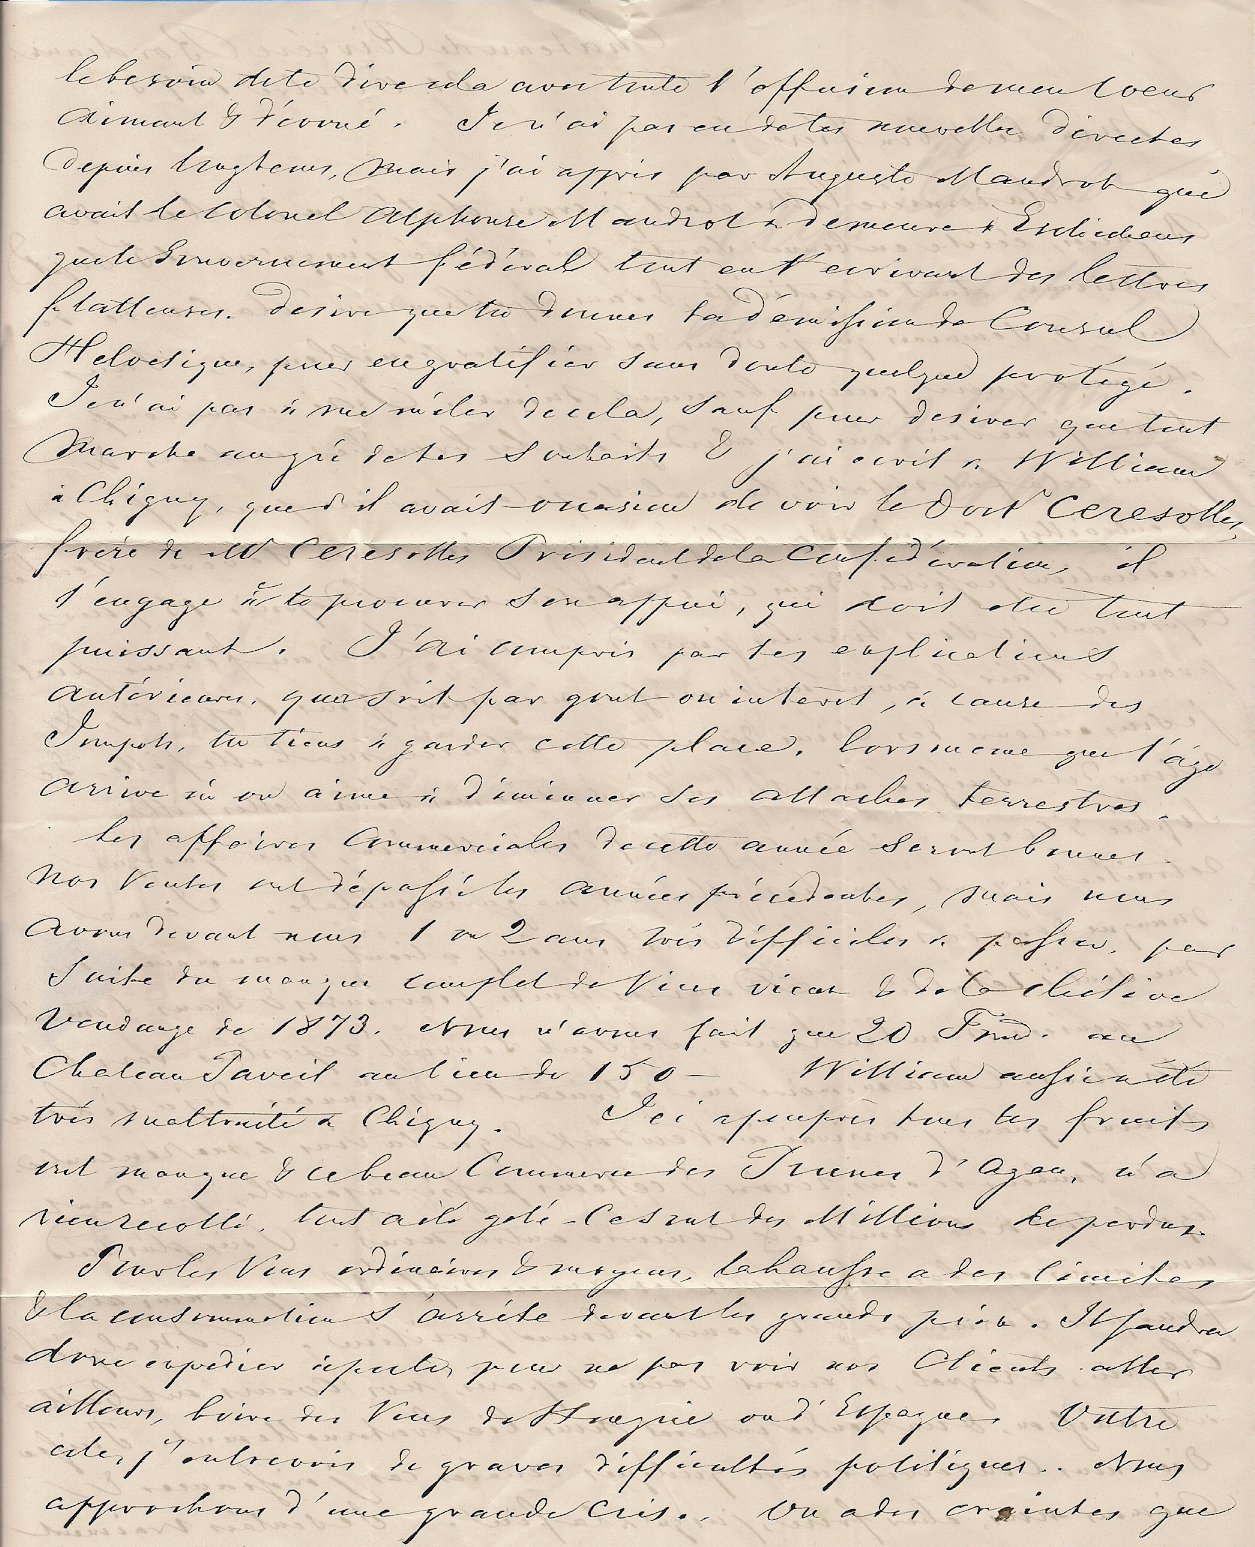 le besoin de te dire cela avec toute l'effusion de mon Coeur
aimant & dévoué. Je n'ai pas eu de tes nouvelles directes
depuis longtems, mais j'ai appris par Auguste Mandrot que
avait le Colonel Alphonse Mandrot a demeure à
que le Gouvernement fédéral tout en t'ecrivant des lettres
flatteuses. desire que tu donnes ta démission de Consul
Helvetique, pour en gratifier sans doute quelque protégé.
Je n'ai pas à me mêler de cela, sauf pour desirer que tout
marche au gré de tes Souhaits & j'ai ecrit à William
à Chigny, que s'il avait occasion de voir le Doctr Ceresolles,
frère de Mr Ceresolles Président de la Confédération, il
l'engage à te procurer son appui, qui doit etre tout
puissant. J'ai compris par tes explications
antérieures, que soit par gout ou interet, à cause des
Impots, tu tiens à garder cette place, lors meme que l'âge
arrive où on aime à diminuer ses attaches terrestres.
Les affaires Commerciales de cette année seront bonnes.
Nos Ventes ont dépassé les années précédentes, mais nous
avons devant nous 1 ou 2 ans très difficiles à passer, par
suite du manque complet de Vins vieux & de la chétive
Vendange de 1873. Nous n'avons fait que 20 Tnx. au
Chateau Paveil au lieu de 150 — William aussi a été
très maltraité à Chigny. Ici apeuprès tous les fruits
ont manque & ce beau Commerce des Prunes d'Agen, n'a
rien recolté, tout a été gelé - Ce sont des Millions de perdus.
Pour les Vins ordinaires & moyens, la hausse a des limites
& la consommation s'arrête devant les grands prix. Il faudra
donc expedier à perte, pour ne pas voir nos Clients aller
ailleurs, boire des Vins de Hongrie ou d'Espagne. Outre
cela, j'entrevois de graves difficultés politiques.. Nous
approchons d'une grande Cris.. On a des craintes que